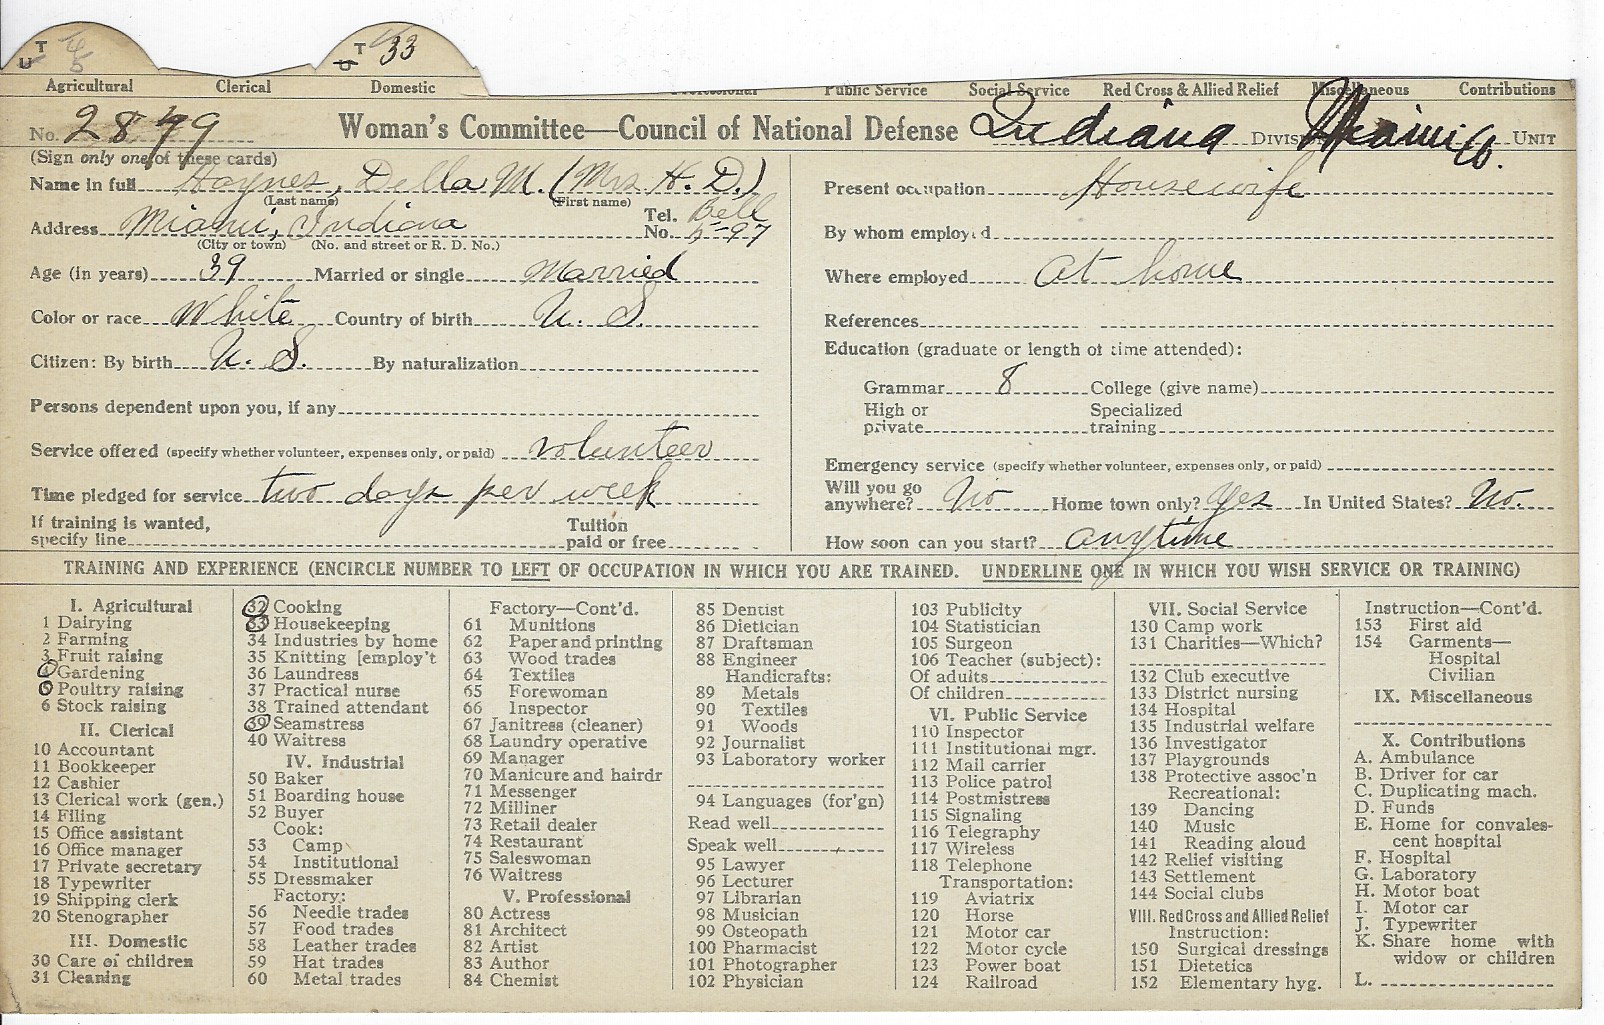 T U 45
T U 33
Agricultural Clerical Domestic Public Service Social Service Red Cross & Allied Relief Miscellaneous Contributions
No. 2879 Woman's Committee—Council of National Defense Indiana DIVISION Miami Co. UNIT
(Sign only one of these cards)
Name in full Haynes, Della M. (Mrs H. D.)
(Last name) (First name)
Address Miami, Indiana Tel. No. Bell 5-97
(City or town) (No. and street or R. D. No.)
Age (in years) 39 Married or single married
Color or race White Country of birth U. S.
Citizen: By birth U. S. By naturalization
Persons dependent upon you, if any
Service offered (specify whether volunteer, expenses only, or paid) volunteer
Time pledged for service two days per week
If training is wanted, specify line Tuition paid or free
Present occupation Housewife
By whom employed
Where employed At home
References
Education (graduate or length of time attended):
Grammar 8 College (give name)
High or private Specialized training
Emergency service (specify whether volunteer, expenses only, or paid)
Will you go anywhere? No Home town only? Yes In United States? No.
How soon can you start? anytime
TRAINING AND EXPERIENCE (ENCIRCLE NUMBER TO LEFT OF OCCUPATION IN WHICH YOU ARE TRAINED. UNDERLINE ONE IN WHICH YOU WISH SERVICE OR TRAINING)
I. Agricultural
1 Dairying
2 Farming
3 Fruit raising
4 Gardening
5 Poultry raising
6 Stock raising
II. Clerical
10 Accountant
11 Bookkeeper
12 Cashier
13 Clerical work (gen.)
14 Filing
15 Office assistant
16 Office manager
17 Private secretary
18 Typewriter
19 Shipping clerk
20 Stenographer
III. Domestic
30 Care of children
31 Cleaning
32 Cooking
33 Housekeeping
34 Industries by home
35 Knitting [employ't
36 Laundress
37 Practical nurse
38 Trained attendant
39 Seamstress
40 Waitress
IV. Industrial
50 Baker
51 Boarding house
52 Buyer
Cook:
53 Camp
54 Institutional
55 Dressmaker
Factory:
56 Needle trades
57 Food trades
58 Leather trades
59 Hat trades
60 Metal trades
Factory—Cont'd.
61 Munitions
62 Paper and printing
63 Wood trades
64 Textiles
65 Forewoman
66 Inspector
67 Janitress (cleaner)
68 Laundry operative
69 Manager
70 Manicure and hairdr
71 Messenger
72 Milliner
73 Retail dealer
74 Restaurant
75 Saleswoman
76 Waitress
V. Professional
80 Actress
81 Architect
82 Artist
83 Author
84 Chemist
85 Dentist
86 Dietician
87 Draftsman
88 Engineer
Handicrafts:
89 Metals
90 Textiles
91 Woods
92 Journalist
93 Laboratory worker
94 Languages (for'gn)
Read well
Speak well
95 Lawyer
96 Lecturer
97 Librarian
98 Musician
99 Osteopath
100 Pharmacist
101 Photographer
102 Physician
103 Publicity
104 Statistician
105 Surgeon
106 Teacher (subject):
Of adults
Of children
VI. Public Service
110 Inspector
111 Institutional mgr.
112 Mail carrier
113 Police patrol
114 Postmistress
115 Signaling
116 Telegraphy
117 Wireless
118 Telephone
Transportation:
119 Aviatrix
120 Horse
121 Motor car
122 Motor cycle
123 Power boat
124 Railroad
VII. Social Service
130 Camp work
131 Charities—Which?
132 Club executive
133 District nursing
134 Hospital
135 Industrial welfare
136 Investigator
137 Playgrounds
138 Protective assoc'n
Recreational:
139 Dancing
140 Music
141 Reading aloud
142 Relief visiting
143 Settlement
144 Social clubs
VIII. Red Cross and Allied Relief
Instruction:
150 Surgical dressings
151 Dietetics
152 Elementary hyg.
Instruction—Cont'd.
153 First aid
154 Garments—
Hospital
Civilian
IX. Miscellaneous
X. Contributions
A. Ambulance
B. Driver for car
C. Duplicating mach.
D. Funds
E. Home for convales-
cent hospital
F. Hospital
G. Laboratory
H. Motor boat
I. Motor car
J. Typewriter
K. Share home with
widow or children
L.